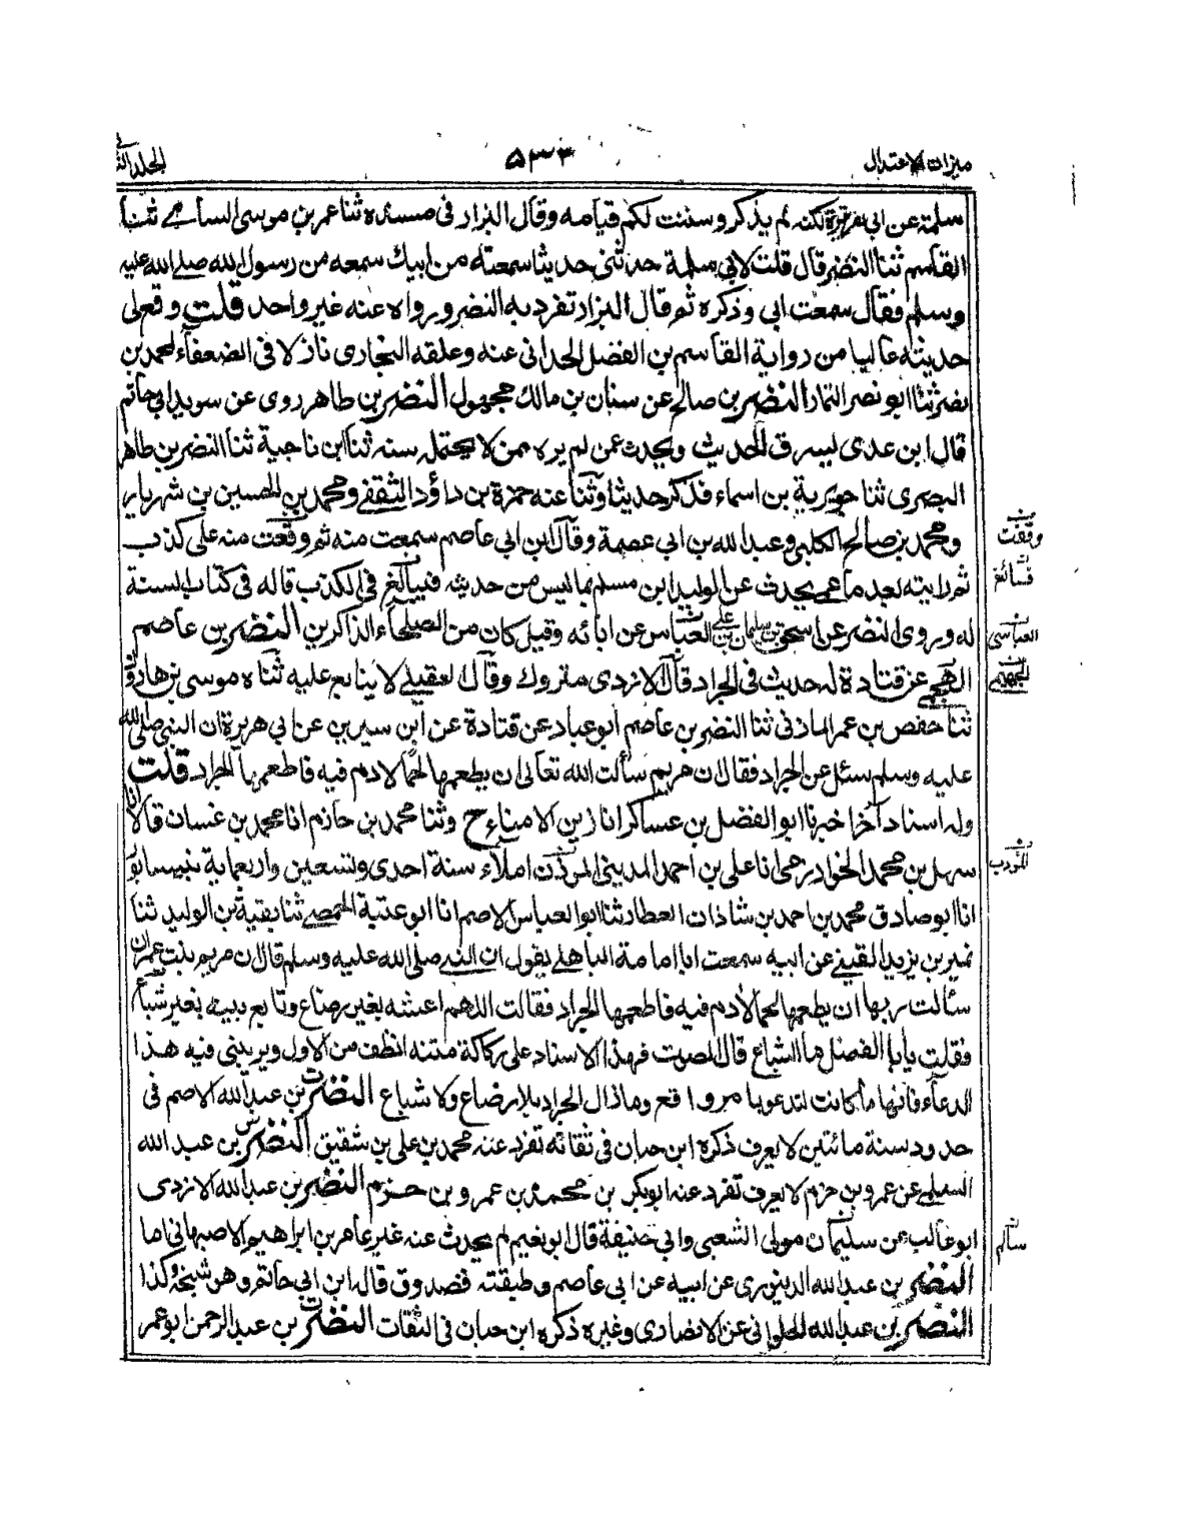 ميزان الاعتدال
۵۳۳
الجلد الثا
في
سلمة عن ابي هريرة لكنه لم يذكر وسننت لكم قيامه وقال البزار في مسنده ثنا عمر بن موسى السامي ثنا
القاسم ثنا النضر قال قلت لابي سلمة حدثني حديثا سمعته من ابيك سمعه من رسول الله صلى الله عليه
وسلم فقال سمعت ابي وذكره ثم قال البزار تفرد به النضر ورواه عنه غير واحد قلت وقع لي
حديثه عاليا من رواية القاسم بن الفضل الحداني عنه وعلقه البخاري نازلا في الضعفاء لمحمد بن
نضر ثنا ابو نصر التمار النضر بن صالح عن سنان بن مالك مجهول النضر بن طاهر روى عن سويد ابي حاتم
قال ابن عدي يسرق الحديث ويحدث عمن لم يره ممن لا يحتمل سنه ثنا ابن ناجية ثنا النضر بن طاهر
البصري ثنا جويرية بن اسماء فذكر حديثا وثنا عنه حمزة بن داؤد الثقفي ومحمد بن الحسين بن شهريار
ومحمد بن صالح الكلبي وعبد الله بن ابي عصمة وقال ابن ابي عاصم سمعت منه ثم وقعت منه على كذب
ثم رايته بعد ما عمي يحدث عن الوليد ابن مسلم بما ليس من حديثه فيبالغ في الكذب قاله في كتاب السنة
له وروى النضر عن اسحق بن سليمان بن علي العباس عن ابائه وقيل كان من الصلحاء الذاكرين النضر بن عاصم
الهجيمي عن قتادة له حديث في الجراد قال الازدي متروك وقال العقيلي لا يتابع عليه ثناه موسى بن هارون
ثنا حفص بن عمر المازني ثنا النضر بن عاصم ابو عباد عن قتادة عن ابن سيرين عن ابي هريرة ان النبي صلى الله
عليه وسلم سئل عن الجراد فقال ان مريم سألت الله تعالى ان يطعمها لحما لا دم فيه فاطعمها الجراد قلت
وله اسناد آخر اخبرنا ابو الفضل بن عساكر انا زين الامناء ح وثنا محمد بن حازم انا محمد بن غسان قالا انا
سهل بن محمد الخوارزمي انا علي بن احمد المديني المؤذن املاء سنة احدى وتسعين واربعماية بنيسابور
انا ابو صادق محمد بن احمد بن شاذان العطار ثنا ابو العباس الاصم انا ابو عتبة الحمصي ثنا بقية بن الوليد ثنا
نمير بن يزيد القيني عن ابيه سمعت ابا امامة الباهلي يقول ان النبي صلى الله عليه وسلم قال ان مريم بنت عمران
سألت ربها ان يطعمها لحما لا دم فيه فاطعمها الجراد فقالت اللهم اعشه بغير رضاع وتابع بينه بغير شياع
فقلت يا ابا الفضل ما الشياع قال الصوت فهذا الاسناد على ركاكة متنه انظف من الاول ويريبني فيه هذا
الدعاء فانها ما كانت لتدعو بامر واقع وما زال الجراد بلا رضاع ولا شياع النضر بن عبد الله الاصم في
حدود سنة مائتين لا يعرف ذكره ابن حبان في ثقاته تفرد عنه محمد بن علي بن شقيق النضر بن عبد الله
السلمي عن عمرو بن حزم لا يعرف تفرد عنه ابو بكر بن محمد بن عمرو بن حزم النضر بن عبد الله الازدي
ابو غالب عن سليمان مولى الشعبي وابي حنيفة قال ابو نعيم لم يحدث عنه غير عامر بن ابراهيم الاصبهاني اما
النضر بن عبد الله الدينوري عن ابيه عن ابي عاصم وطبقته فصدوق قاله ابن ابي حاتم وهو شيخه وكذا
النضر بن عبد الله الحلواني عن الانصاري وغيره ذكره ابن حبان في الثقات النضر بن عبد الرحمن ابو عمر
وقفت
فسائغ
العباسي
المؤدب
سالم